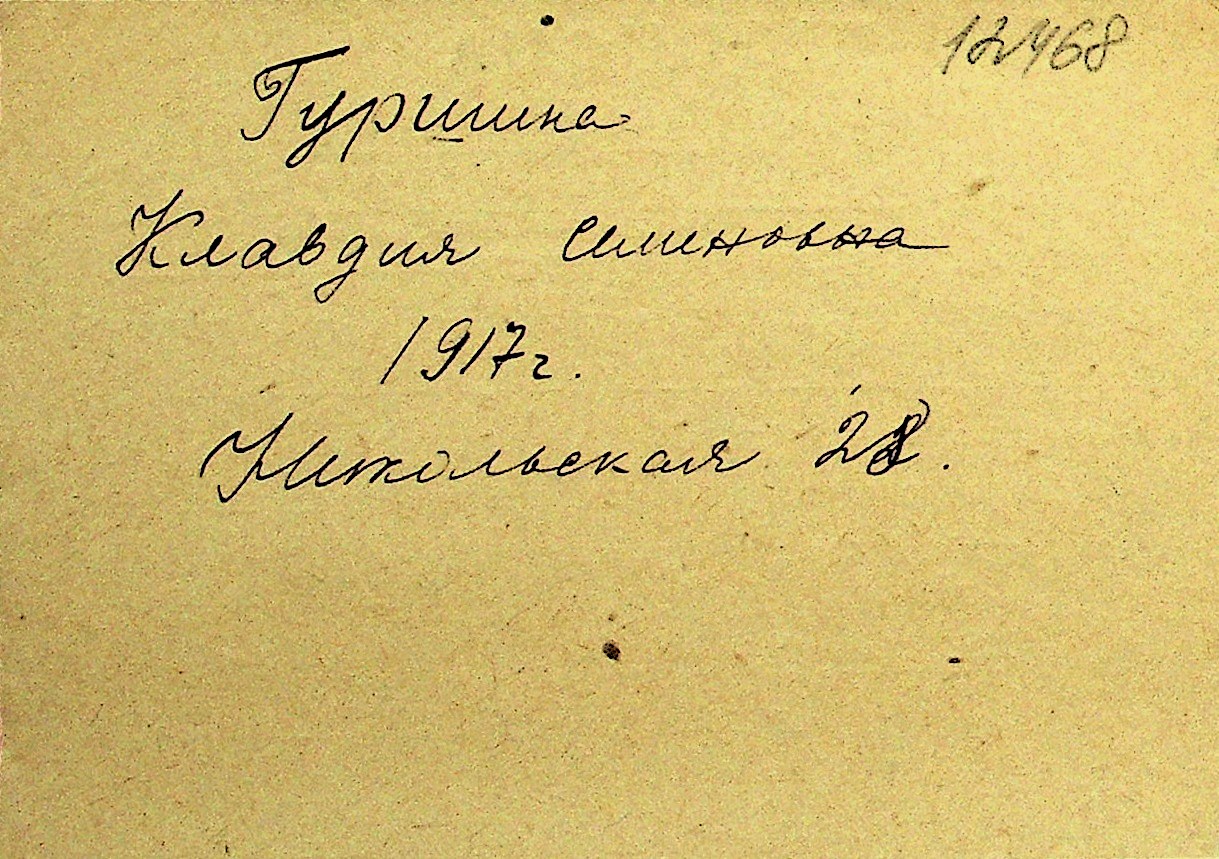 12468
Гуршина
Клавдия Семеновна
1917г.
Никольская 28.